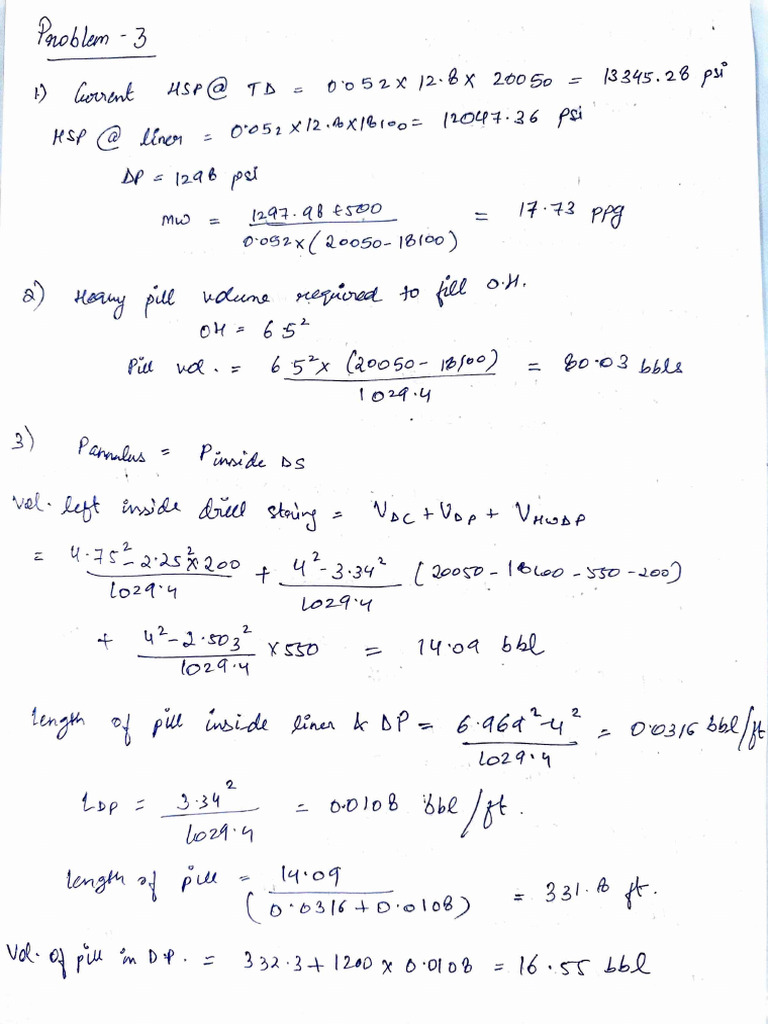 Problem - 3
1) Current HSP @ TD = 0.052 x 12.8 x 20050 = 13345.28 psi
HSP @ liner = 0.052 x 12.8 x 18100 = 12047.36 psi
DP = 1298 psi
MW = 1297.98 + 500 / 0.052 x (20050 - 18100) = 17.73 ppg
2) Heavy pill volume required to fill O.H.
OH = 6.5²
Pill vol. = 6.5² x (20050 - 18100) / 1029.4 = 80.03 bbls
3) Pannulus = Pinside DS
Vol. left inside drill string = VDC + VDP + VHWDP
= 4.75² - 2.25² x 200 / 1029.4 + 4² - 3.34² / 1029.4 (20050 - 18100 - 550 - 200)
+ 4² - 2.503² / 1029.4 x 550 = 14.09 bbl
length of pill inside liner & DP = 6.969² - 4² / 1029.4 = 0.0316 bbl/ft
LDP = 3.34² / 1029.4 = 0.0108 bbl/ft.
length of pill = 14.09 / (0.0316 + 0.0108) = 331.8 ft.
Vol. of pill in D.P. = 332.3 + 1200 x 0.0108 = 16.55 bbl